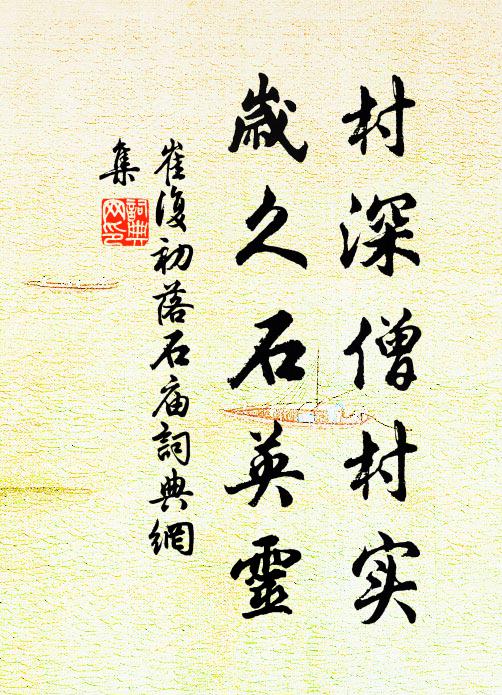 村深僧村实
歲久石英靈
崔復初落石庙詞典網
集
詞典
网印